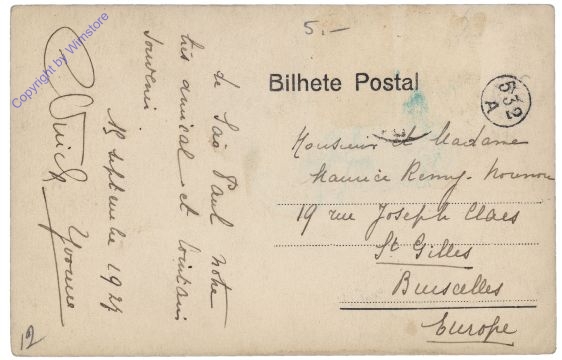 5.—
Bilhete Postal
532
A
de São Paul notre
très amical et lointain
souvenir
15 septembre 192
Yvonne
Monsieur et Madame
Maurice Remy-
19 rue Joseph Claes
St Gilles
Bruxelles
Europe
12
Copyright by Wimstore